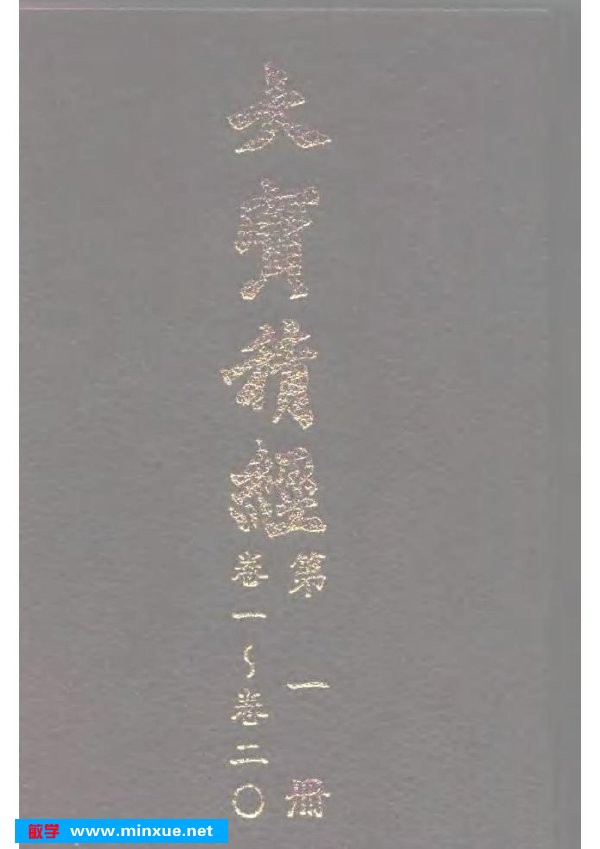 大寶積經
第一册
卷一~卷二〇
敏学 www.minxue.net